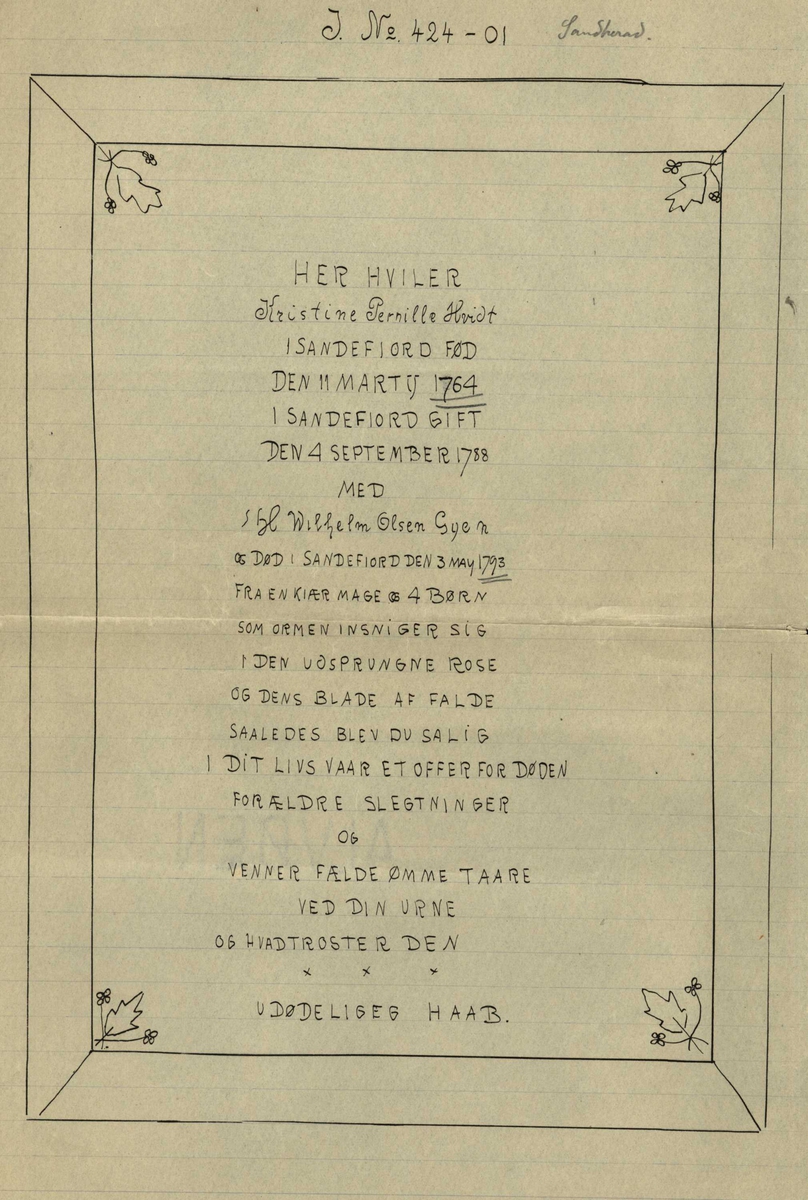 J. No. 424 - 01 Sandherad.
HER HVILER
Kristine Pernille Hvidt
I SANDEFIORD FØD
DEN 11 MARTIJ 1764
I SANDEFIORD GIFT
DEN 4 SEPTEMBER 1788
MED
Wilhelm Olsen Gyen
OG DØD I SANDEFIORD DEN 3 MAY 1793
FRA EN KIÆR MAGE OG 4 BØRN
SOM ORMEN INSNIGER SIG
I DEN UDSPRUNGNE ROSE
OG DENS BLADE AF FALDE
SAALEDES BLEV DU SALIG
I DIT LIVS VAAR ET OFFER FOR DØDEN
FORÆLDRE SLEGTNINGER
OG
VENNER FÆLDE ØMME TAARE
VED DIN URNE
OG HVADTROSTER DEN
x x x
UDØDELIGEG HAAB.